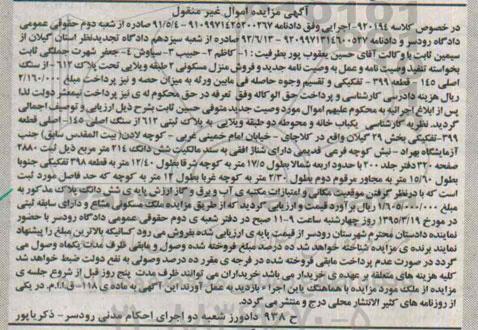 آگهی مزایده اموال غیر منقول
در خصوص کلاسه ۹۲۰۱۹۴ اجرایی وفق دادنامه ۹۱۰۹۹۷۱۴۲۵۳۰۰۲۶۷ - ۹۱/۵/۴ صادره از شعبه دوم حقوقی عمومی
دادگاه رودسر و دادنامه ۹۲۰۹۹۷۱۳۱۴۶۰۰۵۳۷ - ۹۲/۶/۱۳ صادره از شعبه سیزدهم دادگاه تجدیدنظر استان گیلان از
سیمین ثابت یا وکالت آقای حسین یعقوب پور بطرفیت : ۱- کاظم ۲- حبیب ۳- سیاوش ۴- جعفر شهرت جملگی ثابت
بخواسته تنفیذ وصیت نامه و عمل به وصیت نامه جدید و فروش منزل مسکونی ۲ طبقه ویلایی تحت پلاک ۶۱۲ - از سنگ
اصلی ۱۴۵ - قطعه ۳۹۹ - تفکیکی و تقسیم وجوه حاصله فی مابین ورثه به میزان حصه و نیز پرداخت مبلغ ۲/۱۶۰/۰۰۰
ریال هزینه دادرسی کارشناسی و پرداخت حق الوکاله وفق تعرفه در حق محکوم له ی نیز پرداخت نیمعشر دولت لذا
پس از ابلاغ اجرائیه به محکوم علیهم اموال مورد وصیت جدید متوفی حسین ثابت بشرح ذیل ارزیابی و توصیف اجمالی
گردید. نظریه کارشناسی : یکباب خانه و محوطه دو طبقه ویلایی به پلاک ثبتی ۶۱۲ از سنگ اصلی ۱۴۵ - اصلی قطعه
۳۹۹- تفکیکی بخش ۲۹ گیلان واقع در کلاچای - خیابان امام خمینی غربی - کوچه لادن (بیت المقدس سابق) جنب
آزمایشگاه بهراد - نبش کوچه فرعی قدیمی دارای شناژ افقی به سند مالکیت شش دانگ ۲۱۴ متر مربع ذیل ثبت ۲۸۸۰
صفحه ۳۲۰ دفتر جلد ۱۲۰۰ با حدود اربعه شمالا بطول ۱۷/۵ به کوچه شرقا بطول ۱۲/۴۰ به قطعه ۳۹۸ تفکیکی جنوبا
بطول ۱۵/۶۰ متر به مجاور مرقوم دوم بطول ۲/۳۰ متر به کوچه غربا بطول ۱۲ متر به کوچه که حد فاصل مورد ثبت
است که با درنظر گرفتن موقعیت مکانی و امتیازات مکتبه ی آب و برق و گاز ارزش پایه ی شش دانگ پلاک مذکور به
مبلغ ۱/۰۵۰/۰۰۰/۰۰۰ ریال برآورد قیمت و ارزیابی گردید که از طریق مزایده ملک مسکونی مشاع و دارای سابقه ثبتی
در مورخ ۱۳۹۵/۳/۱۹ روز چهارشنبه ساعت ۹-۱۱ صبح در دفتر شعبه ی دوم حقوقی عمومی دادگاه رودسر با حضور
نماینده دادستان محترم شهرستان رودسر از قیمت پایه ی ارزیابی شده بفروش می رود کسانیکه بالاترین مبلغ را پیشنهاد
نمایند برنده ی مزایده شناخته خواهد شد ده درصد مبلغ فروخته شده وصول و مابقی ظرف مدت یکماه وصول می
گردد در صورت عدم پرداخت مابقی فروخته شده در فرجه ی مقرر ده درصد وصولی به نفع دولت ضبط خواهد شد
کلیه هزینه های متعلقه بر عهده ی خریدار می باشد خریداران می توانند ظرف مدت پنج روز قبل از شروع جلسه ی
مزایده از ملک مورد مزایده با هماهنگ یابن اجراء بازدید به عمل آورند این آگهی به ماده ی ۱۱۸-ق.ا.م. در یکی
از روزنامه های کثیر الانتشار محلی درج و منتشر می گردد.
ح ۹۳۸ دادورز شعبه دو اجرای احکام مدنی رودسر- ذکریاپور